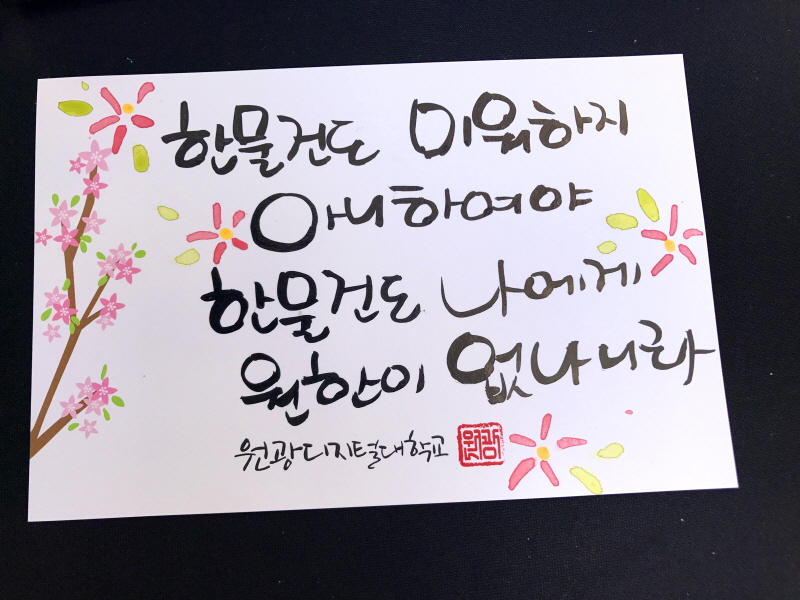 한물건도 미워하지
아니하여야
한물건도 나에게
원한이 없나니라
원광디지털대학교
원광